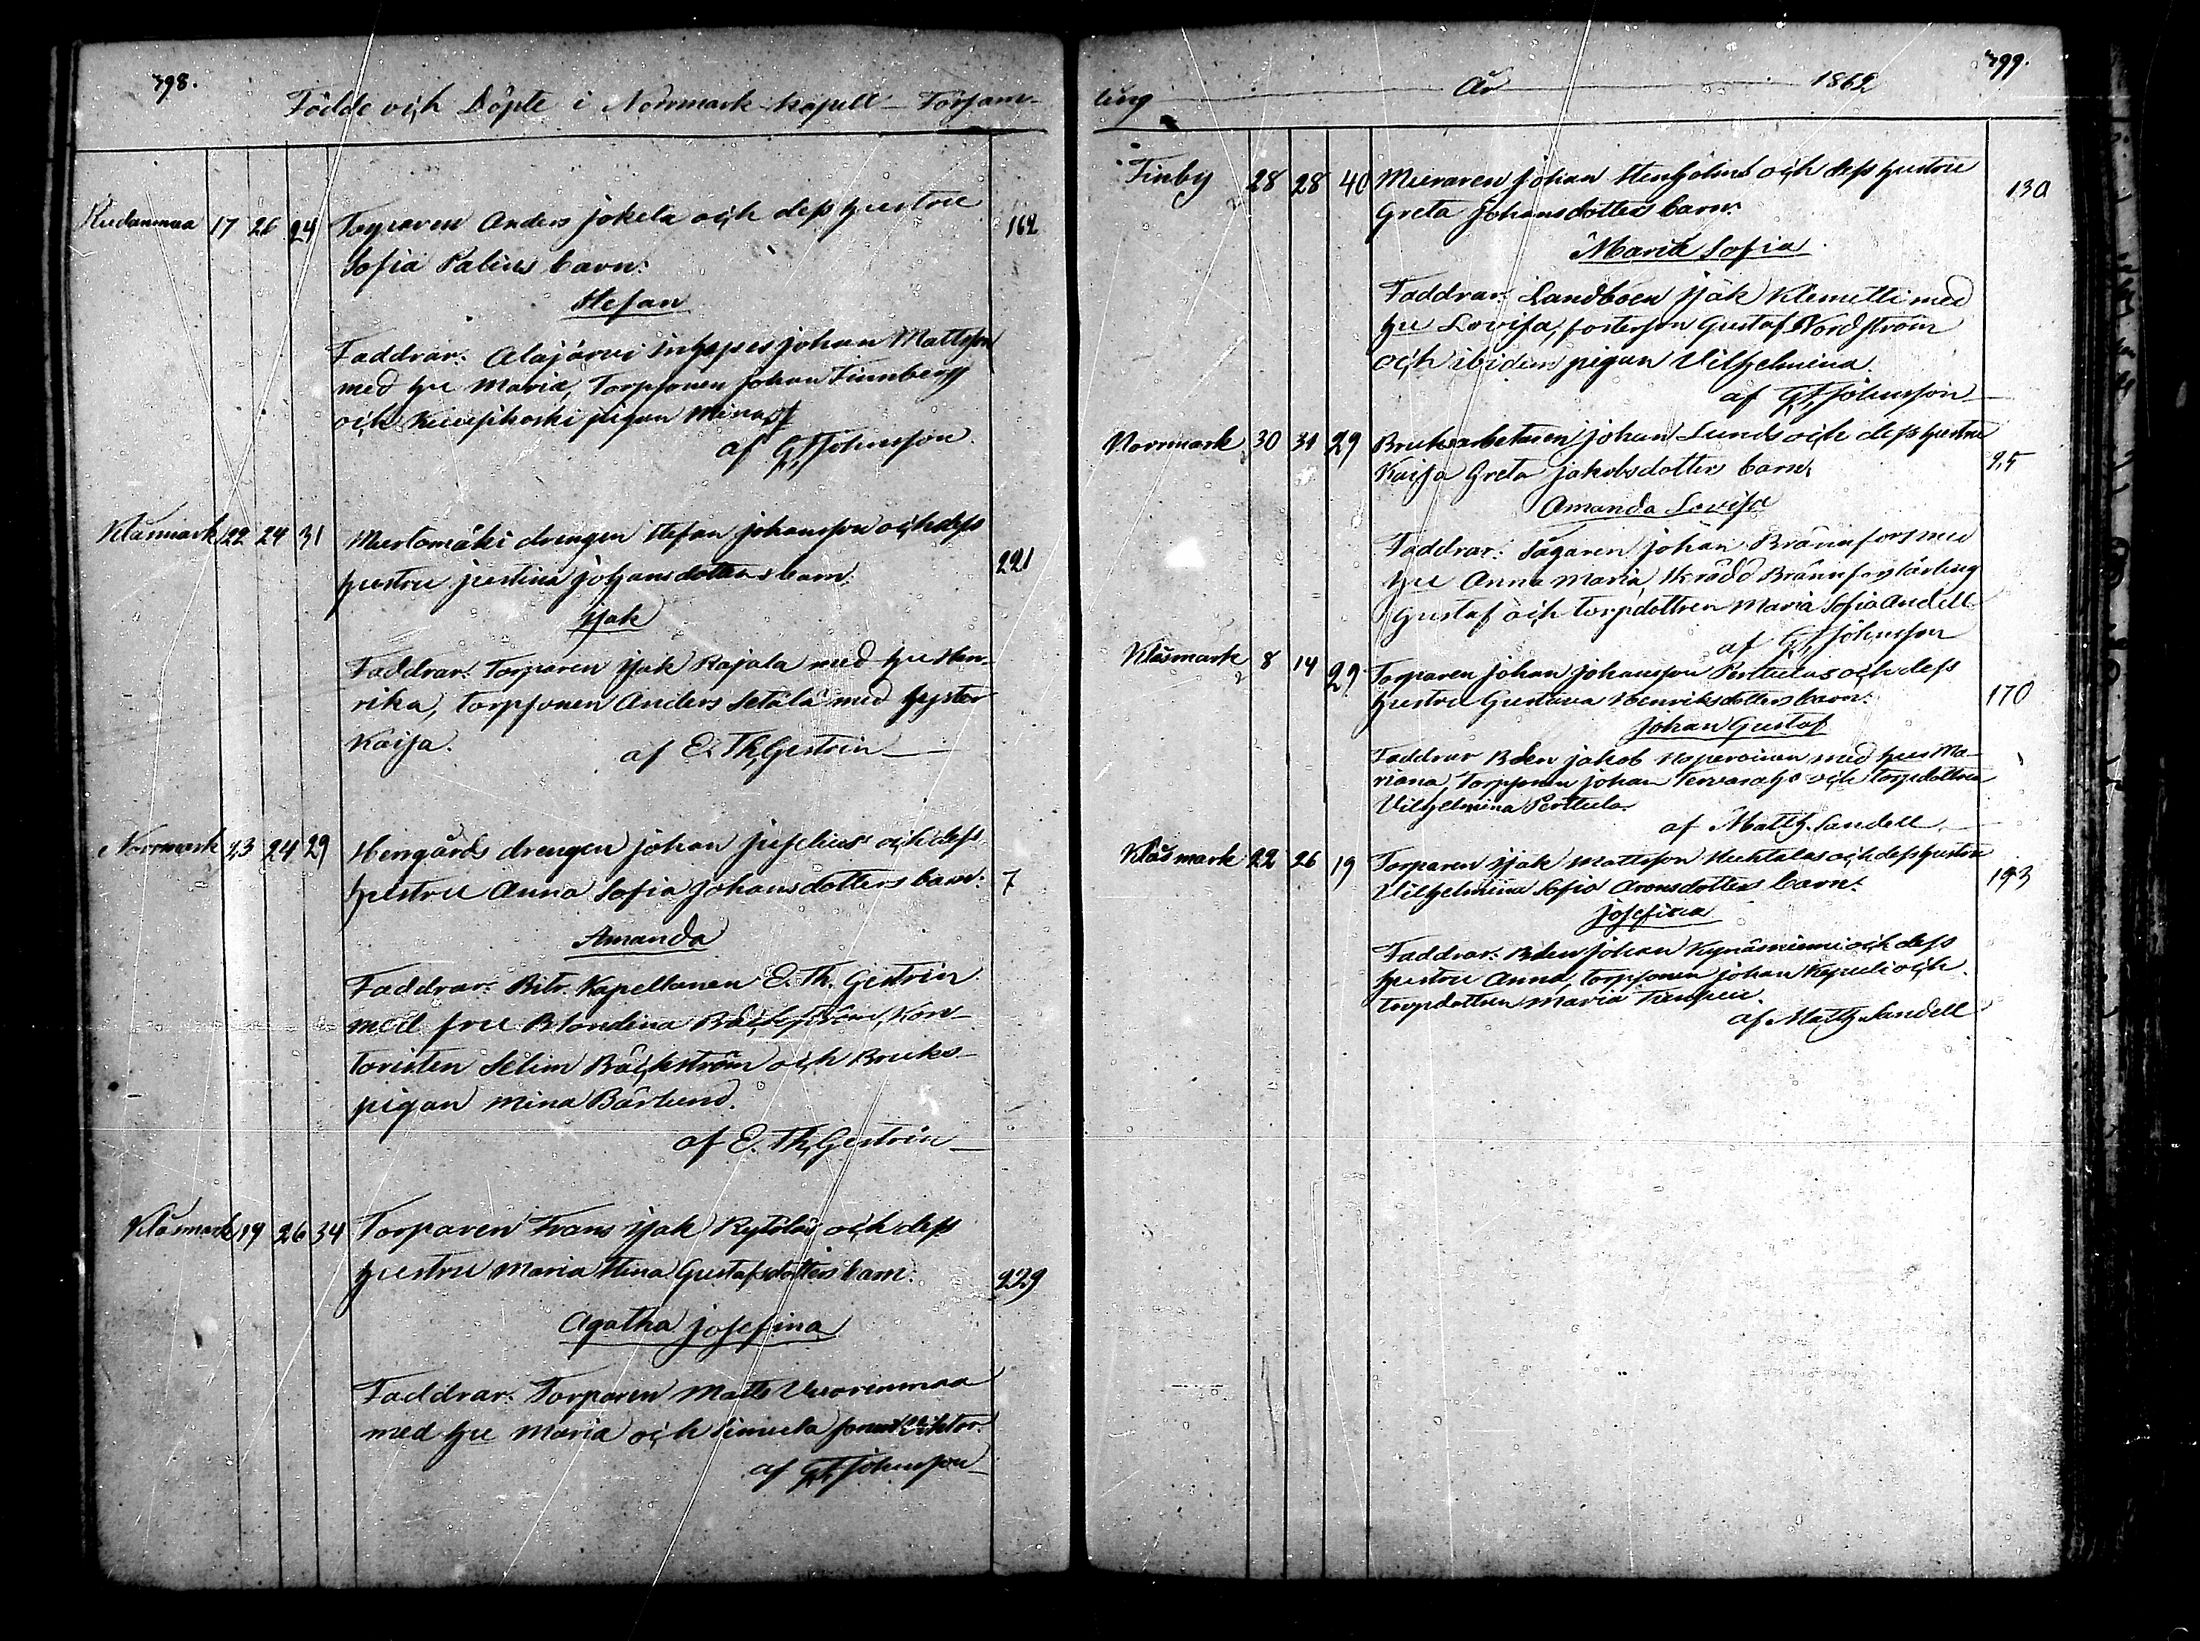 398.
Födde och Döpte i Norrmark kapell Församling
17 26 24 Torparen Anders Jokela och dess hustru 162
Sofia Palins barn:
Stefan
Faddrar: Alajärvi Inhyses Johan Mattsson
med hu Maria, Torpsonen Johan Finnberg
och pigan Mina
af G. Johnsson
Klåsmark 22 24 31 Mustomäki drengen Stefan Johansson och dess
hustru Justina Johansdotters barn: 221
Isak
Faddrar: Torparen Isak Rajala med hu Hen-
rika, torpsonen Anders Setälä med syster
Kaisa.
af E. Th. Gestrin
Norrmark 23 24 29 Herrgårds drengen Johan Juselius och dess
hustru Anna Sofia Johansdotters barn: 7
Amanda
Faddrar: Bitr. Kapellanen E. Th. Gestrin
med fru Blondina Bäckström, Kon-
toristen Selim Bäckström och Bruks-
pigan Mina Bärlund.
af E. Th. Gestrin
Klåsmark 19 26 34 Torparen Frans Isak Rytiläs och dess
hustru Maria Stina Gustafsdotters barn: 229
Agatha Josefina
Faddrar: Torparen Matts Vuorenmaa
med hu Maria och Simula sonen Viktor.
af G. Johnsson
399.
År 1862
Finby 28 28 40 Muraren Johan Stenholms och dess hustru 130
Greta Johansdotters barn:
Maria Sofia
Faddrar: Landboen Isak Klemetti med
hu Lovisa, fosterson Gustaf Nordström
och ibidem pigan Vilhelmina.
af G. Johnsson
Norrmark 30 31 29 Bruksarbetaren Johan Lunds och dess hustru
Kaisa Greta Jakobsdotters barn: 95
Amanda Lovisa
Faddrar: Sågaren Johan Brännfors med
hu Anna Maria, Skrädd Brännfors lärling
Gustaf och torpdottren Maria Sofia Andell
af G. Johnsson
Klåsmark 8 14 29 Torparen Johan Johansson Perttulas och dess
hustru Gustava Henriksdotters barn: 170
Johan Gustaf
Faddrar Bden Jakob med hu Ma-
riana, Torpsonen Johan och torpdottren
Vilhelmina Perttula.
af Matth. Sandell
Klåsmark 22 26 19 Torparen Isak Mattsson Huhtalas och dess hustru
Vilhelmina Sofia Aronsdotters barn: 193
Josefina
Faddrar: Bden Johan Kynäsniemi och dess
hustru Anna, torpsonen Johan och
torpdottren Maria
af Matth. Sandell